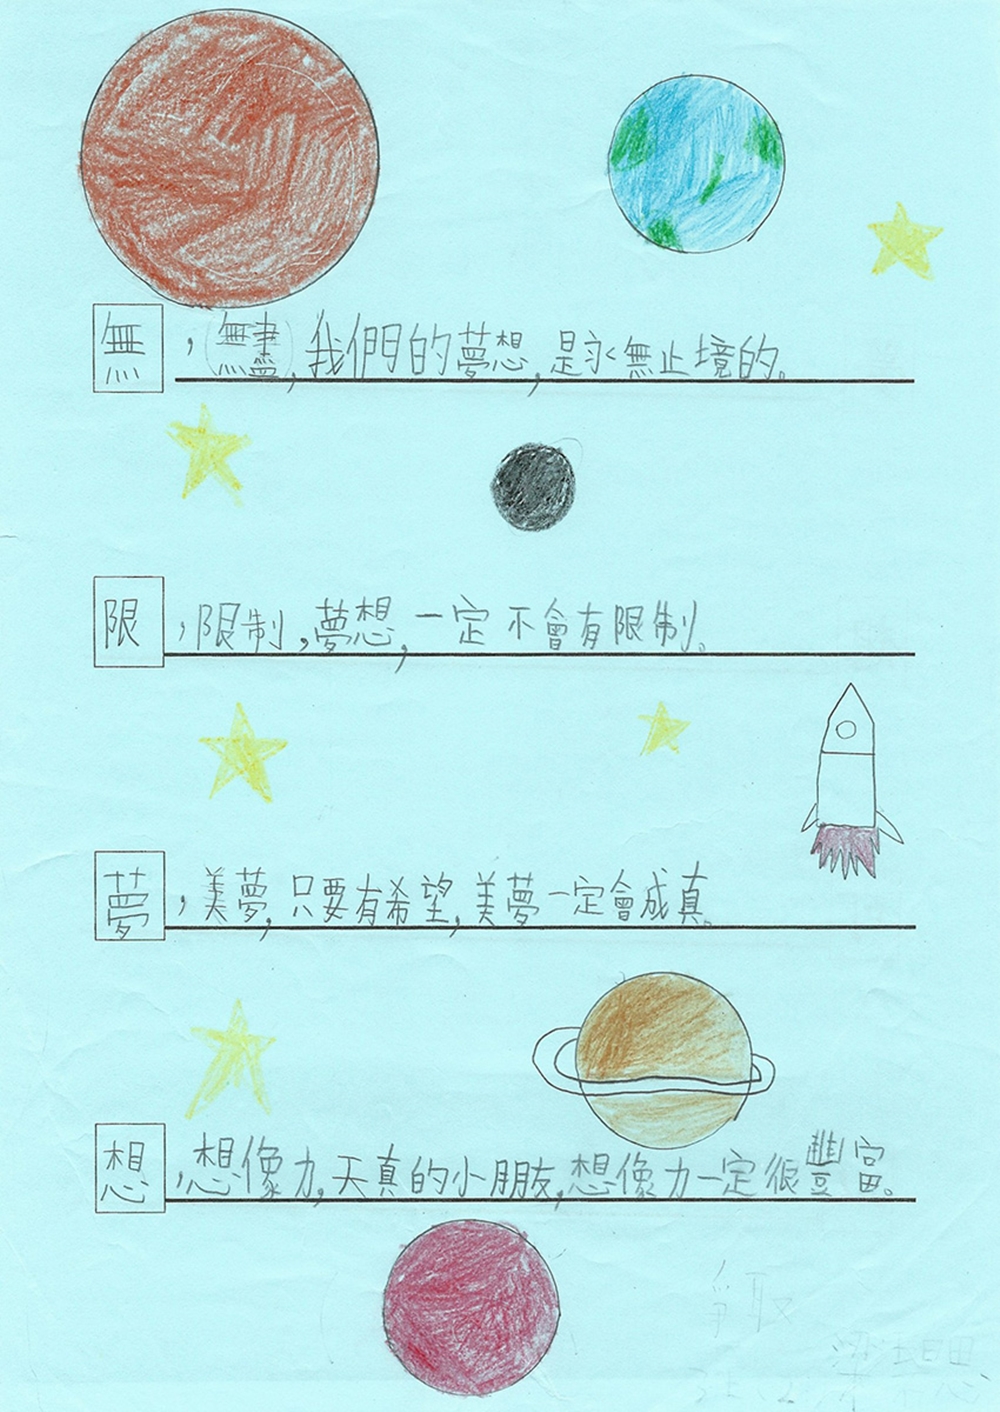 無，無盡，我們的夢想，是永無止境的。
限，限制，夢想，一定不會有限制。
夢，美夢，只要有希望，美夢一定會成真。
想，想像力，天真的小朋友，想像力一定很豐富。
爭取